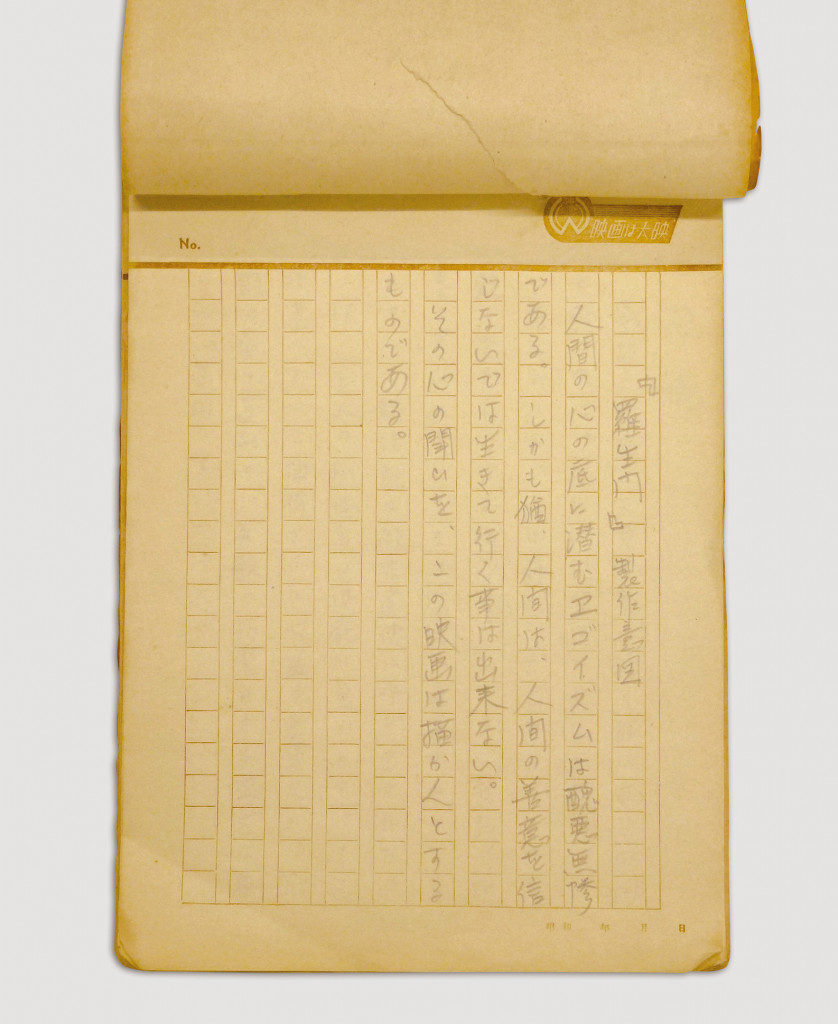 No.
映画は大映
『羅生門』製作意図
人間の心の底に潜むエゴイズムは醜悪無惨
である。しかも猶、人間は、人間の善意を信
じないでは生きて行く事は出来ない。
その心の闘いを、この映画は描か人とする
ものである。
昭和 年 月 日